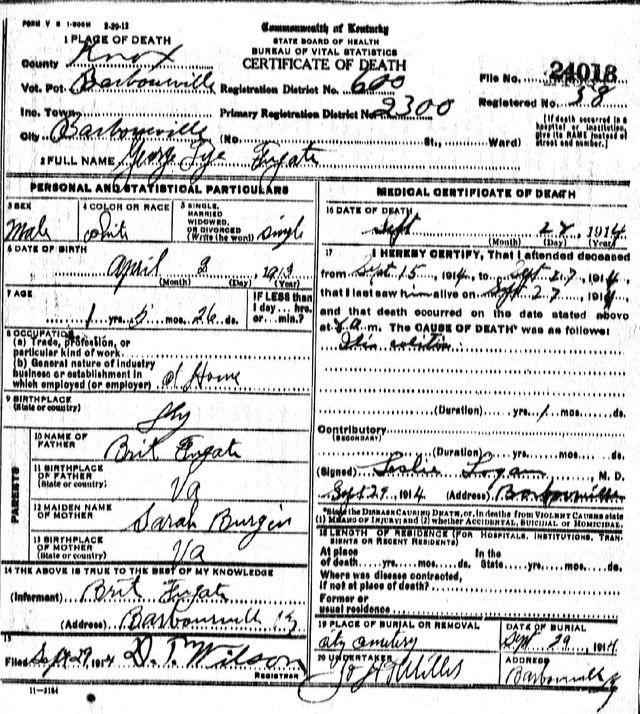 FORM V S 1-500M 2-20-12
Commonwealth of Kentucky
STATE BOARD OF HEALTH
BUREAU OF VITAL STATISTICS
CERTIFICATE OF DEATH
1 PLACE OF DEATH
County Knox
Vot. Pct. Barbourville Registration District No. 600
File No. 24018
Inc. Town Primary Registration District No. 2300
Registered No. 58
City Barbourville (No. St., Ward)
(If death occurred in a hospital or institution, give its NAME instead of street and number.)
2 FULL NAME George Tye Fugate
PERSONAL AND STATISTICAL PARTICULARS
3 SEX
Male
4 COLOR OR RACE
white
5 SINGLE, MARRIED WIDOWED, OR DIVORCED (Write the word) single
6 DATE OF BIRTH
April 2 1913
(Month) (Day) (Year)
7 AGE
1 yrs. 5 mos. 26 ds.
IF LESS than 1 day... hrs. or... min.?
8 OCCUPATION
(a) Trade, profession, or particular kind of work.
(b) General nature of industry business or establishment in which employed (or employer) at Home
9 BIRTHPLACE
(State or country)
Ky
PARENTS
10 NAME OF FATHER
Brit Fugate
11 BIRTHPLACE OF FATHER
(State or country)
Va
12 MAIDEN NAME OF MOTHER
Sarah Burgin
13 BIRTHPLACE OF MOTHER
(State or country)
Va
14 THE ABOVE IS TRUE TO THE BEST OF MY KNOWLEDGE
(Informant) Brit Fugate
(Address) Barbourville Ky
15
Filed Sept 29 1914 D. T. Wilson
REGISTRAR
11-3184
MEDICAL CERTIFICATE OF DEATH
16 DATE OF DEATH
Sept 27 1914
(Month) (Day) (Year)
17 I HEREBY CERTIFY, That I attended deceased
from Sept 15, 1914, to Sept 27, 1914,
that I last saw him alive on Sept 27, 1914,
and that death occurred on the date stated above
at m. The CAUSE OF DEATH* was as follows:
colitis
(Duration) yrs. 1 mos. ds.
Contributory
(SECONDARY)
(Duration) yrs. mos. ds.
(Signed) Leslie Logan M. D.
Sept 29, 1914 (Address) Barbourville
*State the DISEASE CAUSING DEATH, or, in deaths from VIOLENT CAUSES state
(1) MEANS OF INJURY; and (2) whether ACCIDENTAL, SUICIDAL or HOMICIDAL.
18 LENGTH OF RESIDENCE (FOR HOSPITALS, INSTITUTIONS, TRANSIENTS OR RECENT RESIDENTS)
At place of death yrs. mos. ds. In the State yrs. mos. ds.
Where was disease contracted,
if not at place of death?
Former or
usual residence
19 PLACE OF BURIAL OR REMOVAL
city cemetery
DATE OF BURIAL
Sept 29 1914
20 UNDERTAKER
Millis
ADDRESS
Barbourville Ky